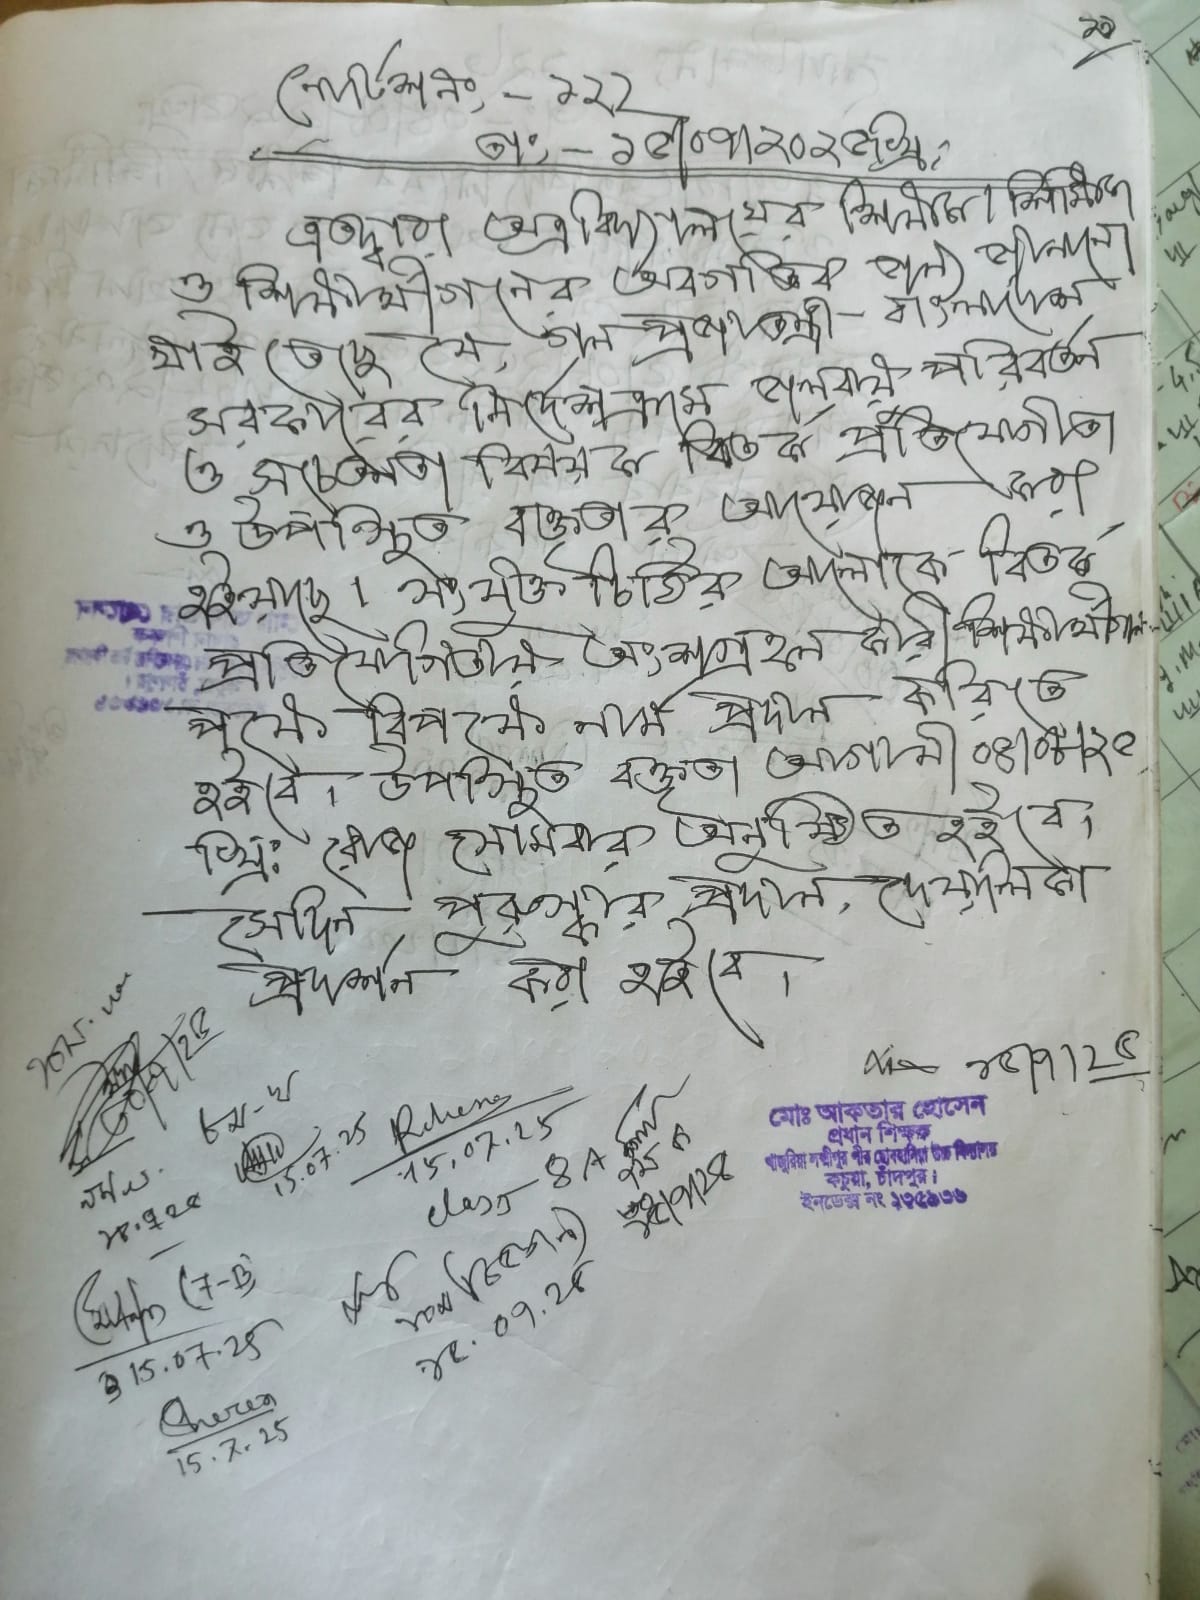 নোটিশ নং - ১২২
তাং - ১৫/০৭/২০২৫খ্রি.
এতদ্বারা অত্র বিদ্যালয়ের শিক্ষক / শিক্ষিকা
ও শিক্ষার্থীগনের অবগতির জন্য জানানো
যাইতেছে যে, গনপ্রজাতন্ত্রী বাংলাদেশ
সরকারের নির্দেশক্রমে জলবায়ু পরিবর্তন
ও সচেতনতা বিষয়ক বিতর্ক প্রতিযোগীতা
ও উপস্থিত বক্তৃতার আয়োজন করা
হইয়াছে। সংযুক্ত চিঠির আলোকে বিতর্ক
প্রতিযোগিতায় অংশগ্রহন কারী শিক্ষার্থীগন
পক্ষে বিপক্ষে নাম প্রদান করিতে
হইবে। উপস্থিত বক্তৃতা আগামী ০৪/০৮/২৫
খ্রি: রোজ সোমবার অনুষ্ঠিত হইবে।
সেদিন পুরুস্কার প্রদান, দেয়ালিকা
প্রদর্শন করা হইবে।
১৫/৭/২৫
মোঃ আকতার হোসেন
প্রধান শিক্ষক
কচুয়া, চাঁদপুর।
ইনডেক্স নং
৮ম-খ
15.07.25
Rehena
15.07.25
class 8 A
(7-B)
15.07.25
১৫.০৭.২৫
15.7.25